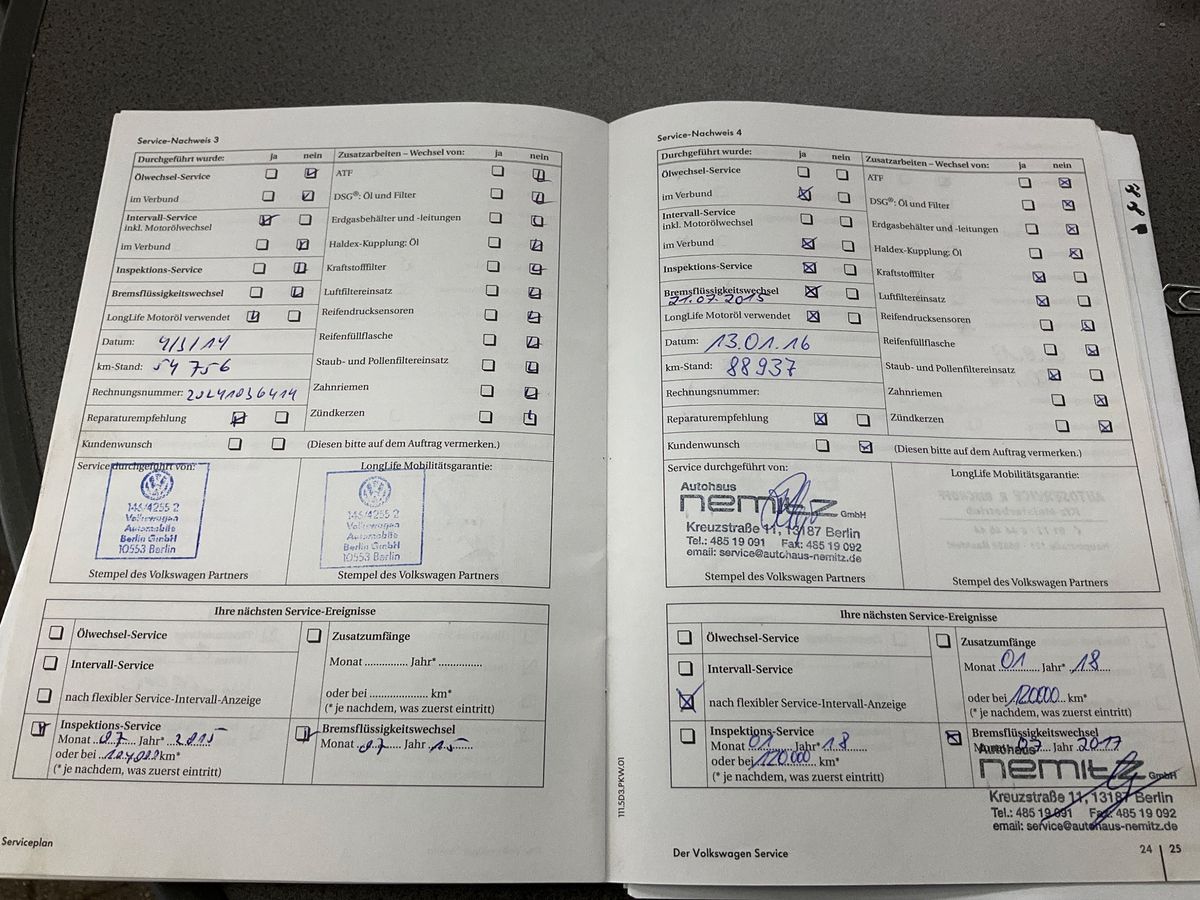 Service-Nachweis 3
Durchgeführt wurde: ja nein
Ölwechsel-Service
im Verbund
Intervall-Service
inkl. Motorölwechsel
im Verbund
Inspektions-Service
Bremsflüssigkeitswechsel
LongLife Motoröl verwendet
Datum: 4/3/14
km-Stand: 54 756
Rechnungsnummer:
Reparaturempfehlung
Kundenwunsch
Zusatzarbeiten – Wechsel von: ja nein
ATF
DSG®: Öl und Filter
Erdgasbehälter und -leitungen
Haldex-Kupplung: Öl
Kraftstofffilter
Luftfiltereinsatz
Reifendrucksensoren
Reifenfüllflasche
Staub- und Pollenfiltereinsatz
Zahnriemen
Zündkerzen
(Diesen bitte auf dem Auftrag vermerken.)
Service durchgeführt von:
146/4255 2
Volkswagen
Automobile
Berlin GmbH
10553 Berlin
Stempel des Volkswagen Partners
LongLife Mobilitätsgarantie:
146/4255 2
Volkswagen
Automobile
Berlin GmbH
10553 Berlin
Stempel des Volkswagen Partners
Ihre nächsten Service-Ereignisse
Ölwechsel-Service
Intervall-Service
nach flexibler Service-Intervall-Anzeige
Zusatzumfänge
Monat ............. Jahr* .............
oder bei .................... km*
(* je nachdem, was zuerst eintritt)
Inspektions-Service
Monat 07 Jahr* 2015
oder bei km*
(* je nachdem, was zuerst eintritt)
Bremsflüssigkeitswechsel
Monat 07 Jahr 15
Serviceplan
Service-Nachweis 4
Durchgeführt wurde: ja nein
Ölwechsel-Service
im Verbund
Intervall-Service
inkl. Motorölwechsel
im Verbund
Inspektions-Service
Bremsflüssigkeitswechsel
21.07.2015
LongLife Motoröl verwendet
Datum: 13.01.16
km-Stand: 88937
Rechnungsnummer:
Reparaturempfehlung
Kundenwunsch
Zusatzarbeiten – Wechsel von: ja nein
ATF
DSG®: Öl und Filter
Erdgasbehälter und -leitungen
Haldex-Kupplung: Öl
Kraftstofffilter
Luftfiltereinsatz
Reifendrucksensoren
Reifenfüllflasche
Staub- und Pollenfiltereinsatz
Zahnriemen
Zündkerzen
(Diesen bitte auf dem Auftrag vermerken.)
Service durchgeführt von:
Autohaus
nemitz GmbH
Kreuzstraße 11, 13187 Berlin
Tel.: 485 19 091 Fax: 485 19 092
email: service@autohaus-nemitz.de
Stempel des Volkswagen Partners
LongLife Mobilitätsgarantie:
Stempel des Volkswagen Partners
Ihre nächsten Service-Ereignisse
Ölwechsel-Service
Intervall-Service
nach flexibler Service-Intervall-Anzeige
Zusatzumfänge
Monat 01 Jahr* 18
oder bei 120000 km*
(* je nachdem, was zuerst eintritt)
Inspektions-Service
Monat 01 Jahr* 18
oder bei 120000 km*
(* je nachdem, was zuerst eintritt)
Bremsflüssigkeitswechsel
Monat 07 Jahr 2017
Autohaus
nemitz GmbH
Kreuzstraße 11, 13187 Berlin
Tel.: 485 19 091 Fax: 485 19 092
email: service@autohaus-nemitz.de
111.5D3.PKW.01
Der Volkswagen Service
24 | 25